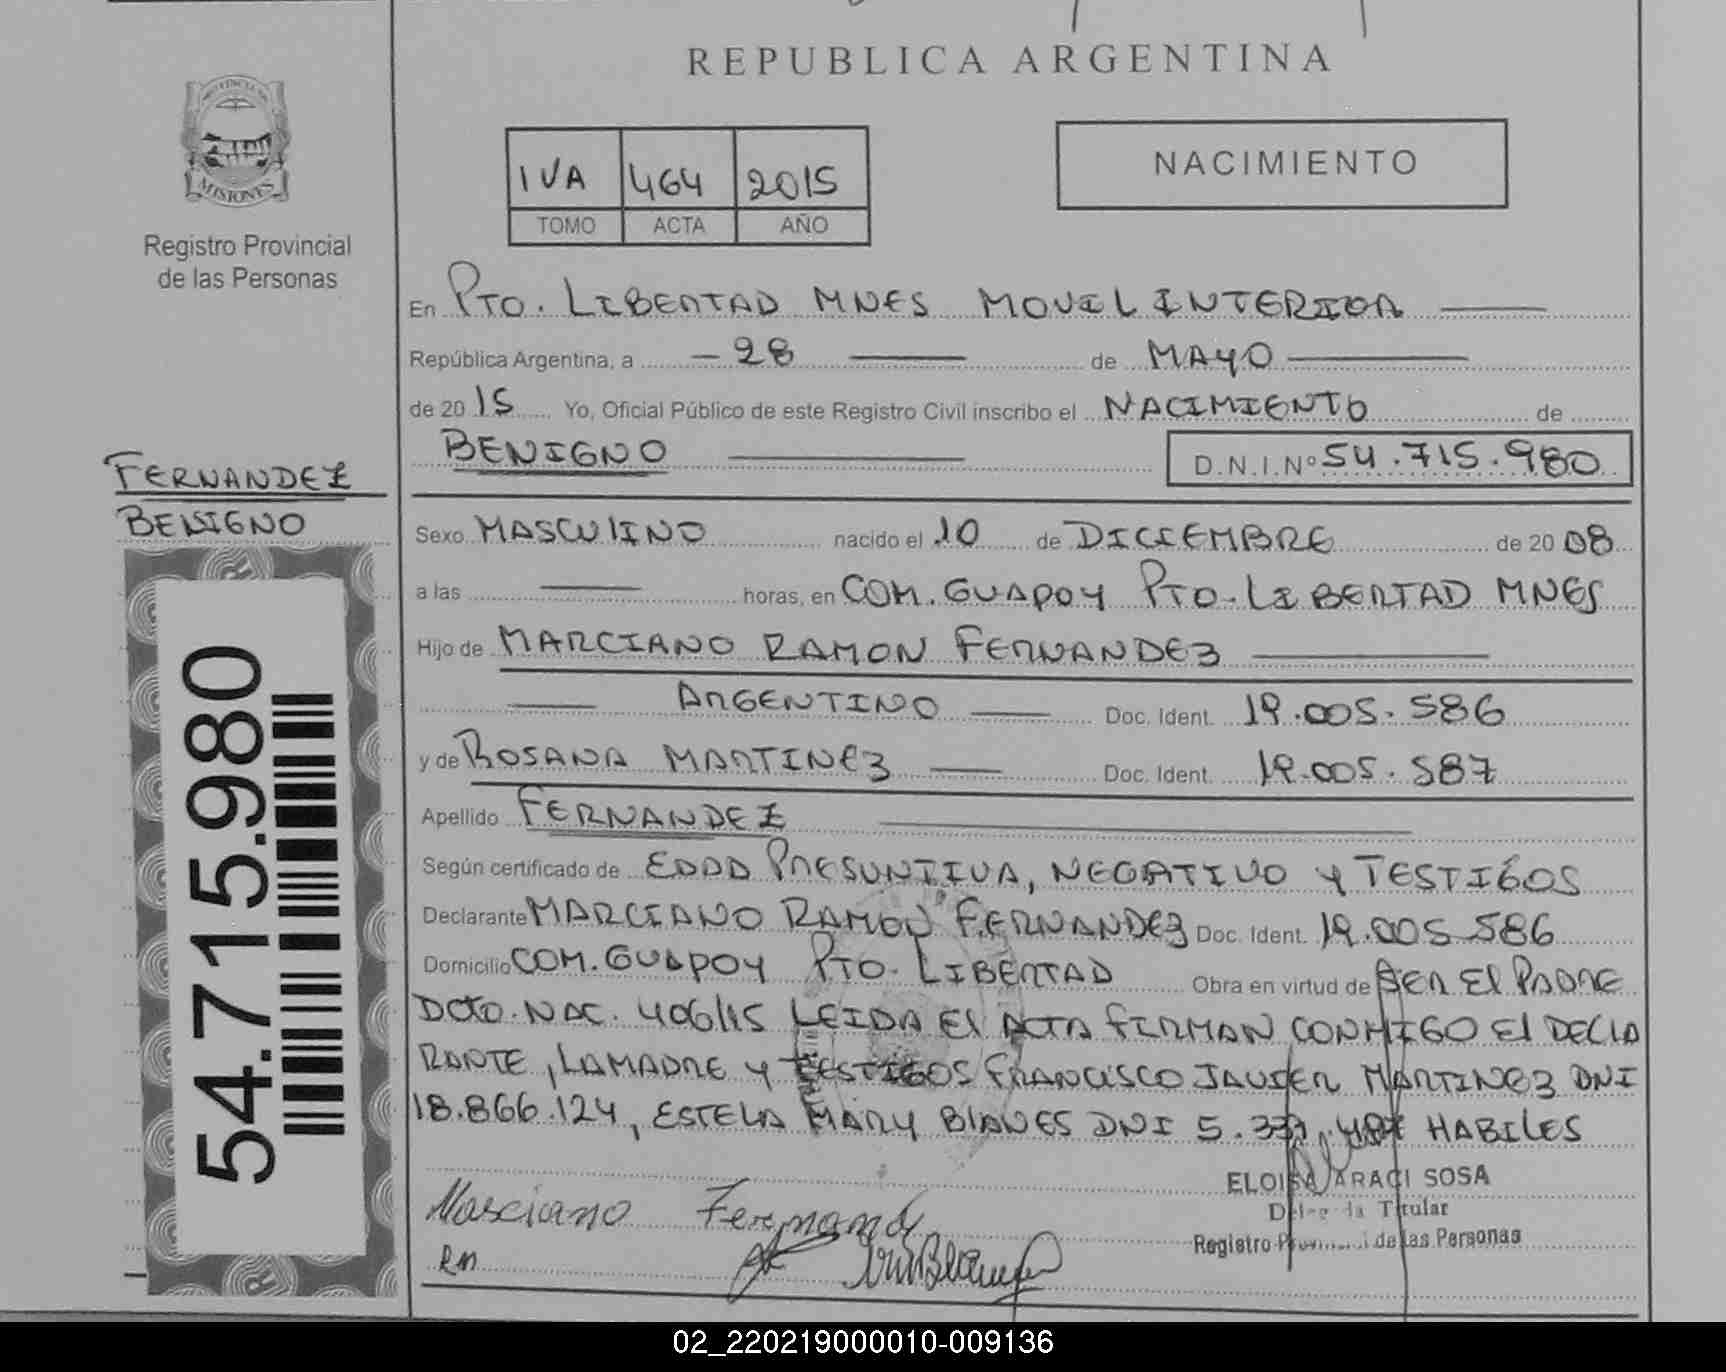 REPUBLICA ARGENTINA
MISIONES
Registro Provincial
de las Personas
IVA 464 2015
TOMO ACTA AÑO
NACIMIENTO
En PTO. LIBERTAD MNES MOVIL INTERIOR
República Argentina, a 28 de MAYO
de 20 15 Yo, Oficial Público de este Registro Civil inscribo el NACIMIENTO de
BENIGNO D.N.I.Nº 54.715.980
FERNANDEZ
BENIGNO
54.715.980
Sexo MASCULINO nacido el 10 de DICIEMBRE de 20 08
a las horas, en COM. GUAPOY PTO. LIBERTAD MNES
Hijo de MARCIANO RAMON FERNANDEZ
ARGENTINO Doc. Ident. 19.005.586
y de ROSANA MARTINEZ Doc. Ident. 19.005.587
Apellido FERNANDEZ
Según certificado de EDAD PRESUNTIVA, NEGATIVO Y TESTIGOS
Declarante MARCIANO RAMON FERNANDEZ Doc. Ident. 19.005.586
Domicilio COM. GUAPOY PTO. LIBERTAD Obra en virtud de SER EL PADRE
DCTO. NAC. 406/15 LEIDA EL ACTA FIRMAN CONMIGO EL DECLA
RANTE, LA MADRE Y TESTIGOS FRANCISCO JAVIER MARTINEZ DNI
18.866.124, ESTELA MARY BLANES DNI 5. HABILES
Marciano Fernand
RM
ELOISA ARACI SOSA
Delegada Titular
Registro Provincial de las Personas
02_220219000010-009136